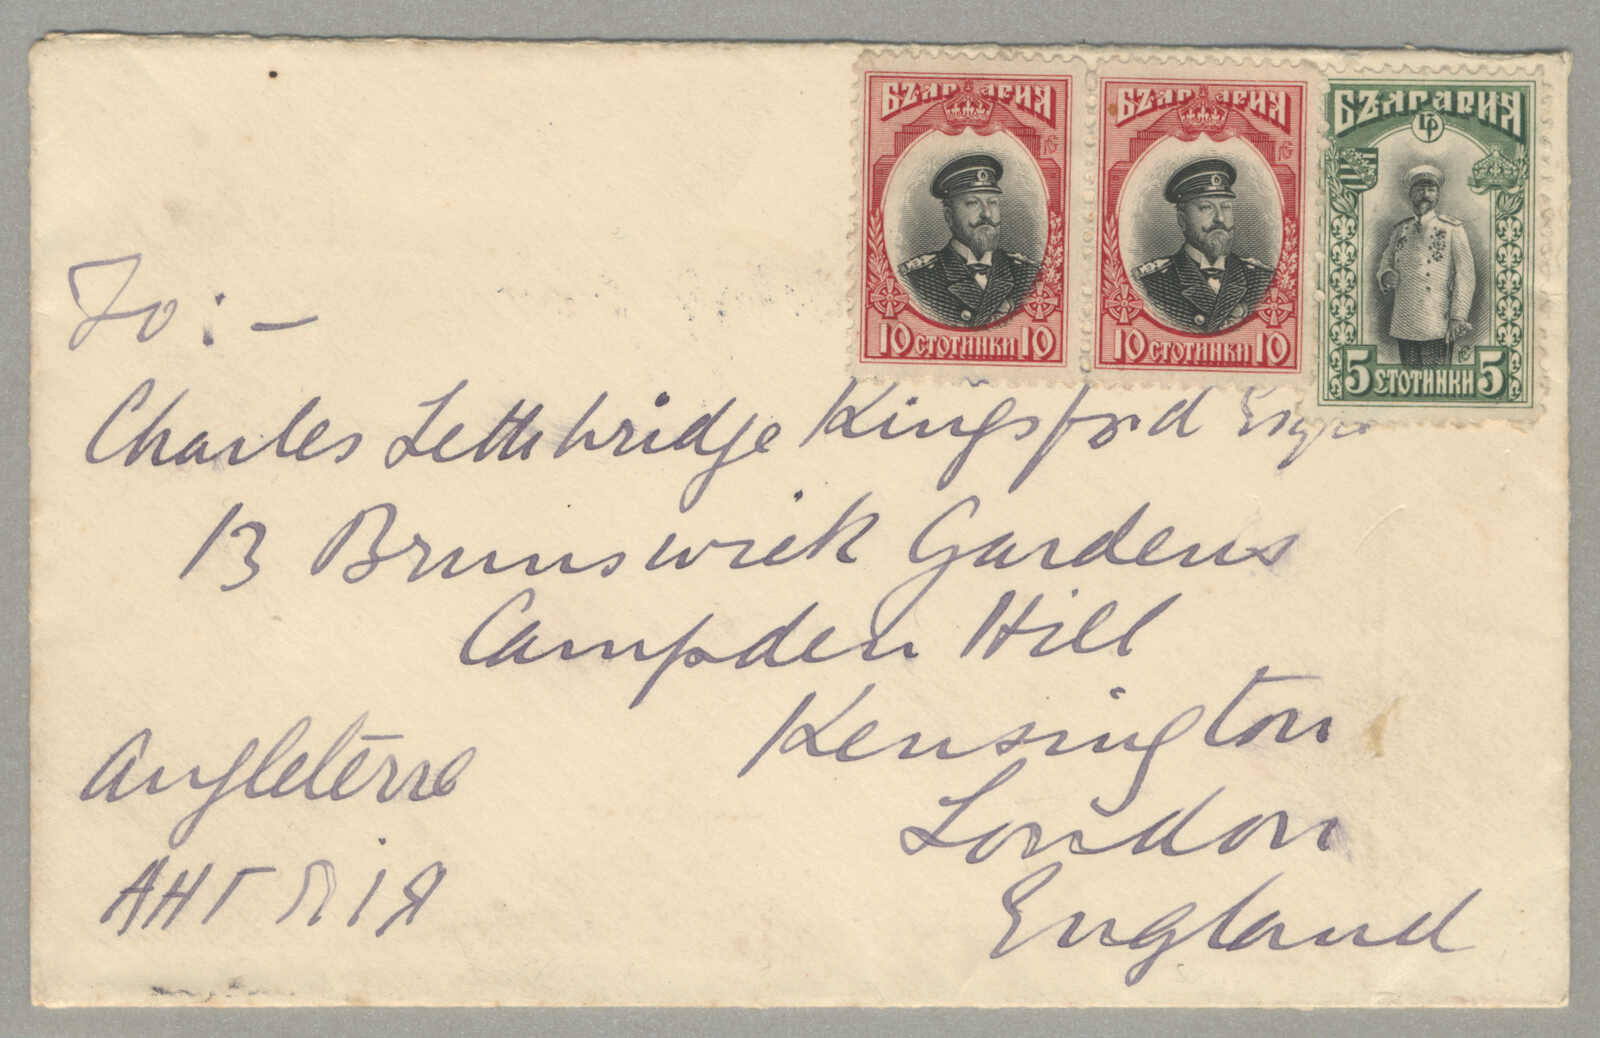 БЪЛГАРИЯ
10 СТОТИНКИ 10
БЪЛГАРИЯ
10 СТОТИНКИ 10
БЪЛГАРИЯ
5 СТОТИНКИ 5
To:-
Charles Lethbridge Kingsford Esqre
13 Brunswick Gardens
Campden Hill
Kensington
London
England
Angleterre
АНГЛІЯ